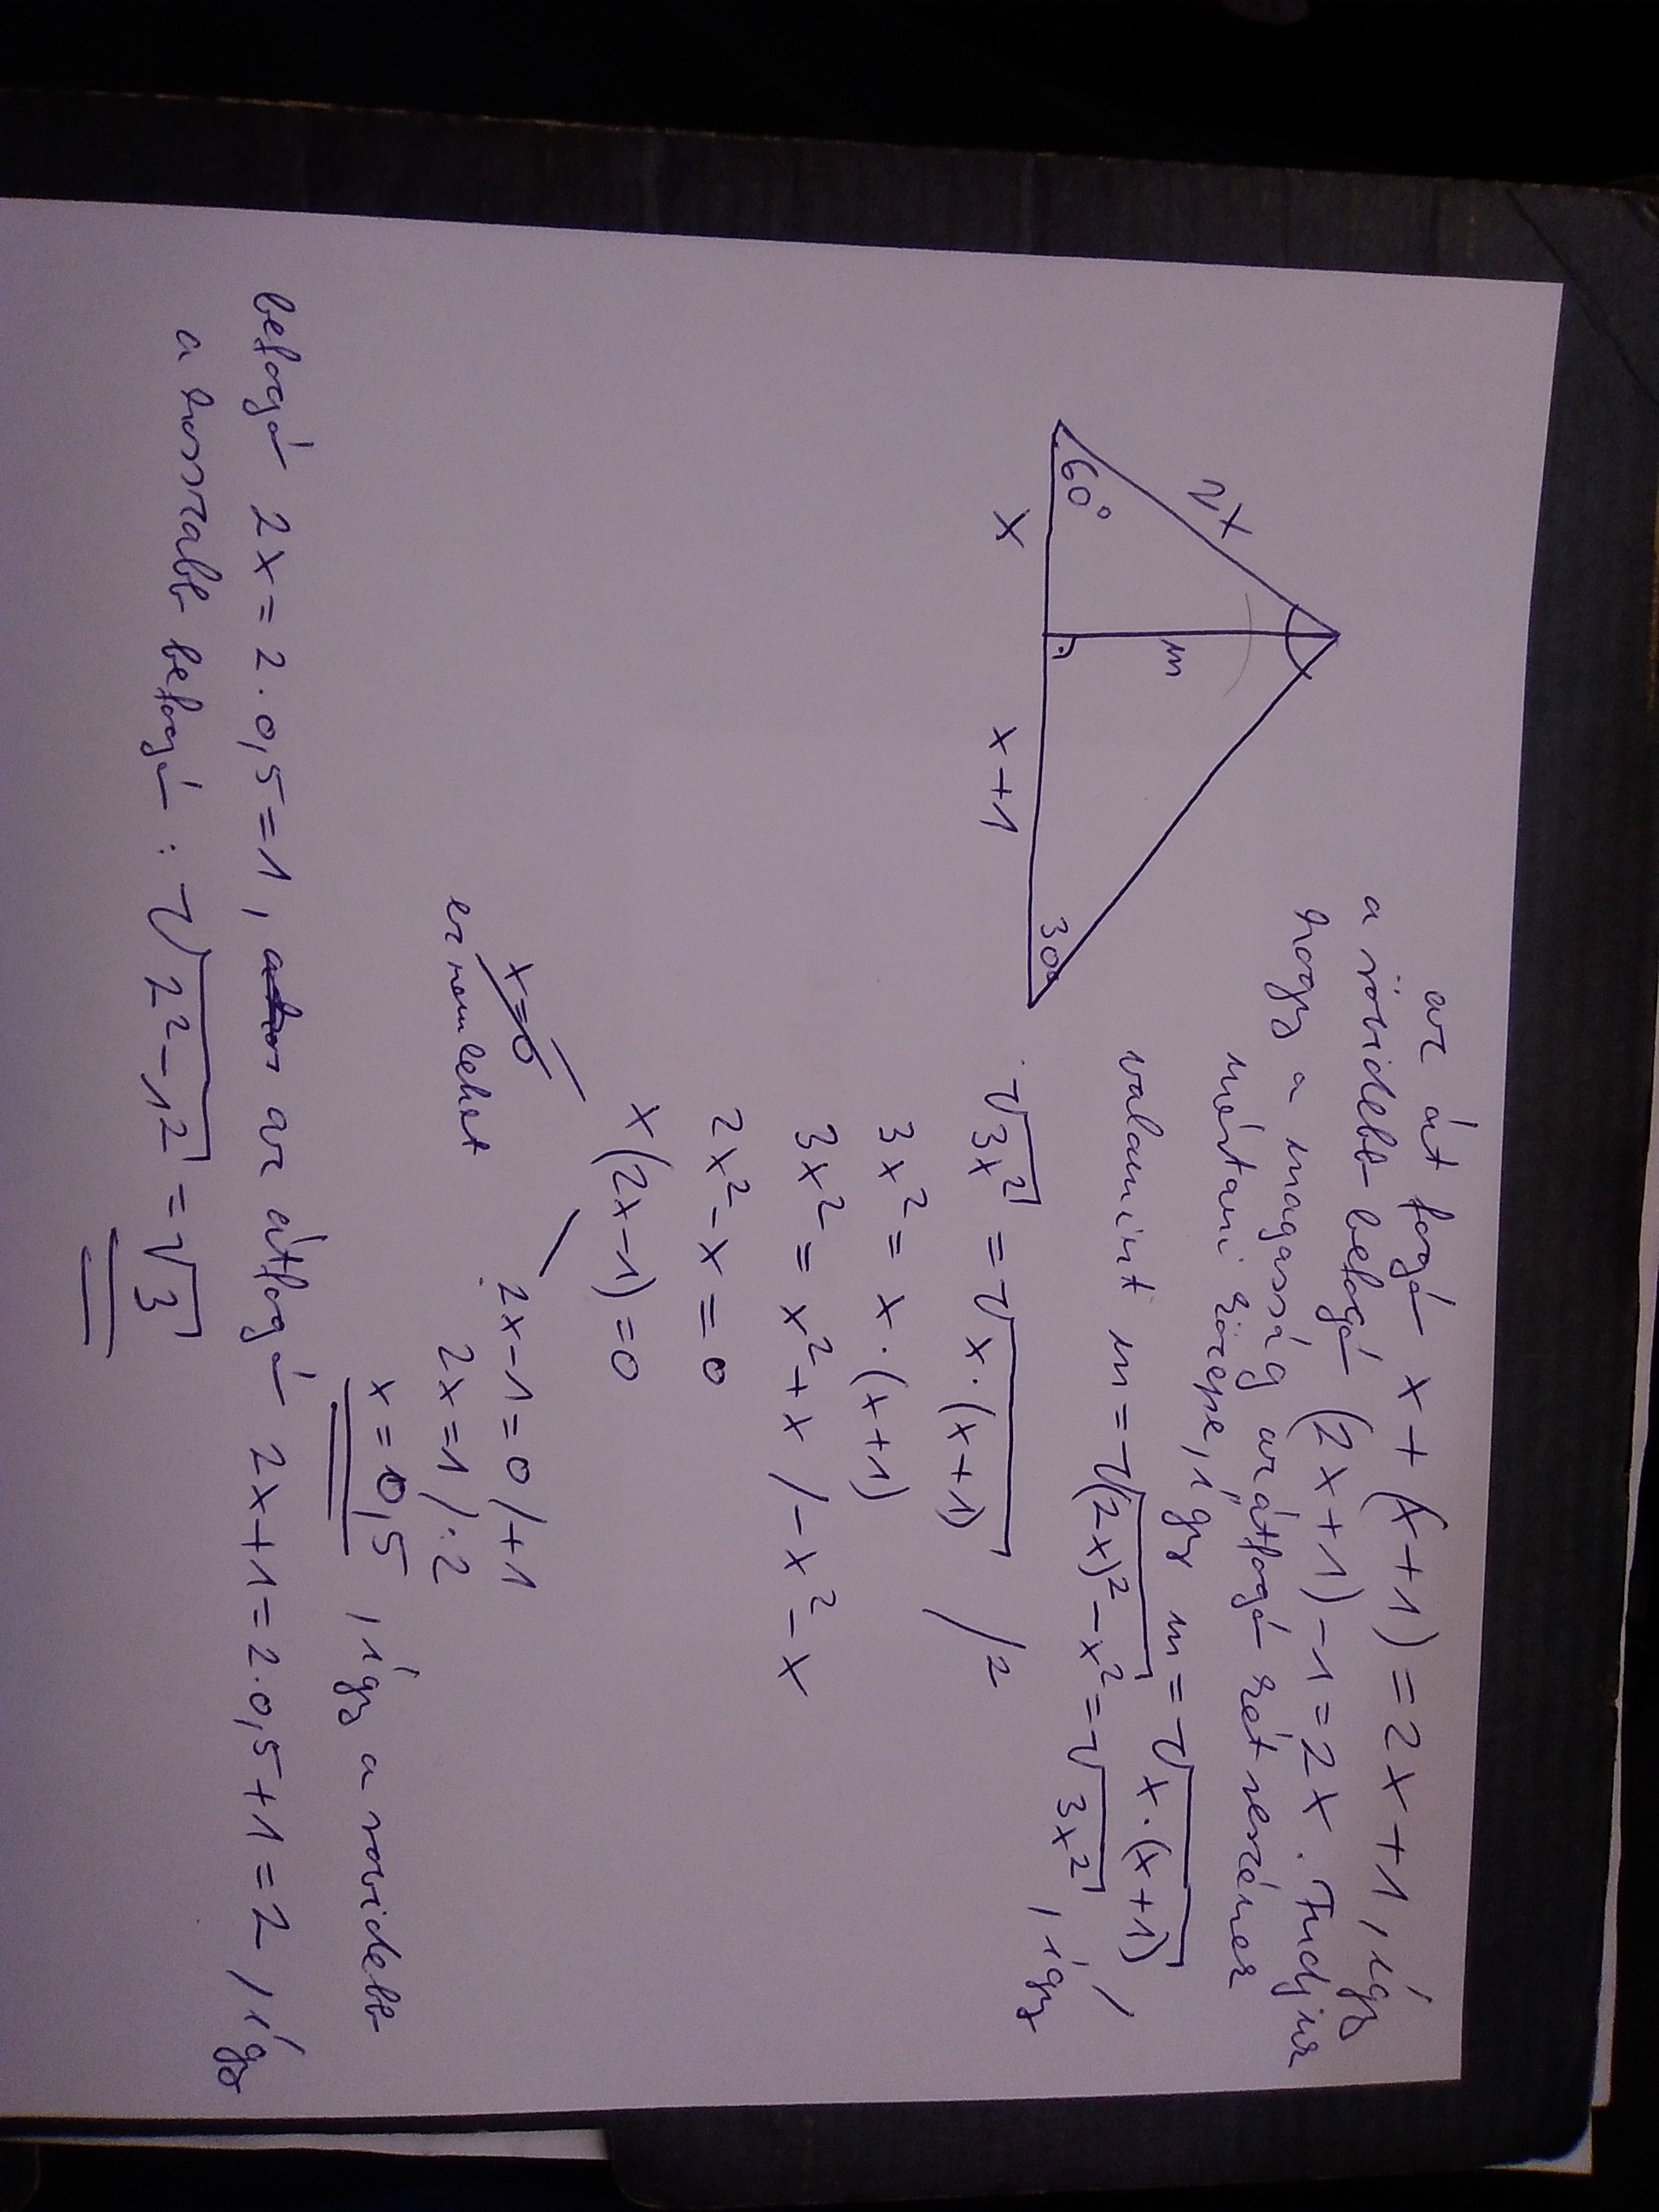 az át fogá x+(x+1)=2x+1, így
a rövidebb befogá (2x+1)-1=2x. Tudjuk
hogy a magasság az átfogá két reszének
mértani közepe, így m=√x·(x+1),
valamint m=√(2x)²-x²=√3x², így
2x
60°
m
30°
x
x+1
√3x²=√x·(x+1) /²
3x²=x·(x+1)
3x²=x²+x /-x²-x
2x²-x=0
x(2x-1)=0
x=0
ez nem lehet
2x-1=0/+1
2x=1/:2
x=0,5, így a rövidebb
befogá 2x=2·0,5=1, az átfogá 2x+1=2·0,5+1=2, így
a hosszabb befogá: √2²-1²=√3